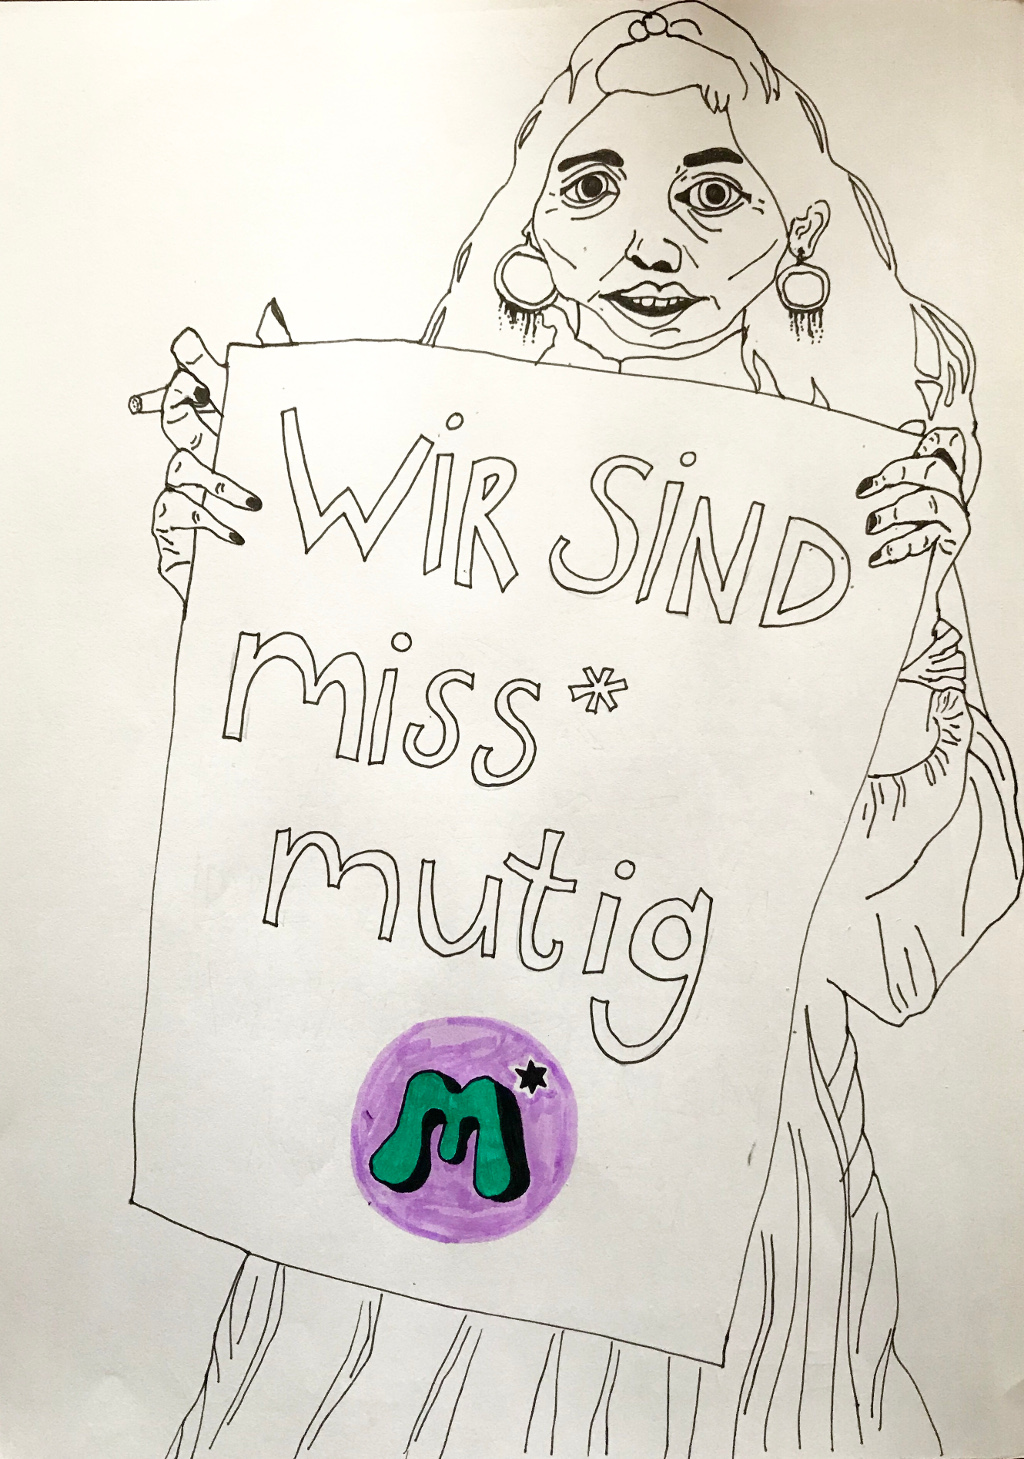 WiR SiND
miss*
mutig
M*